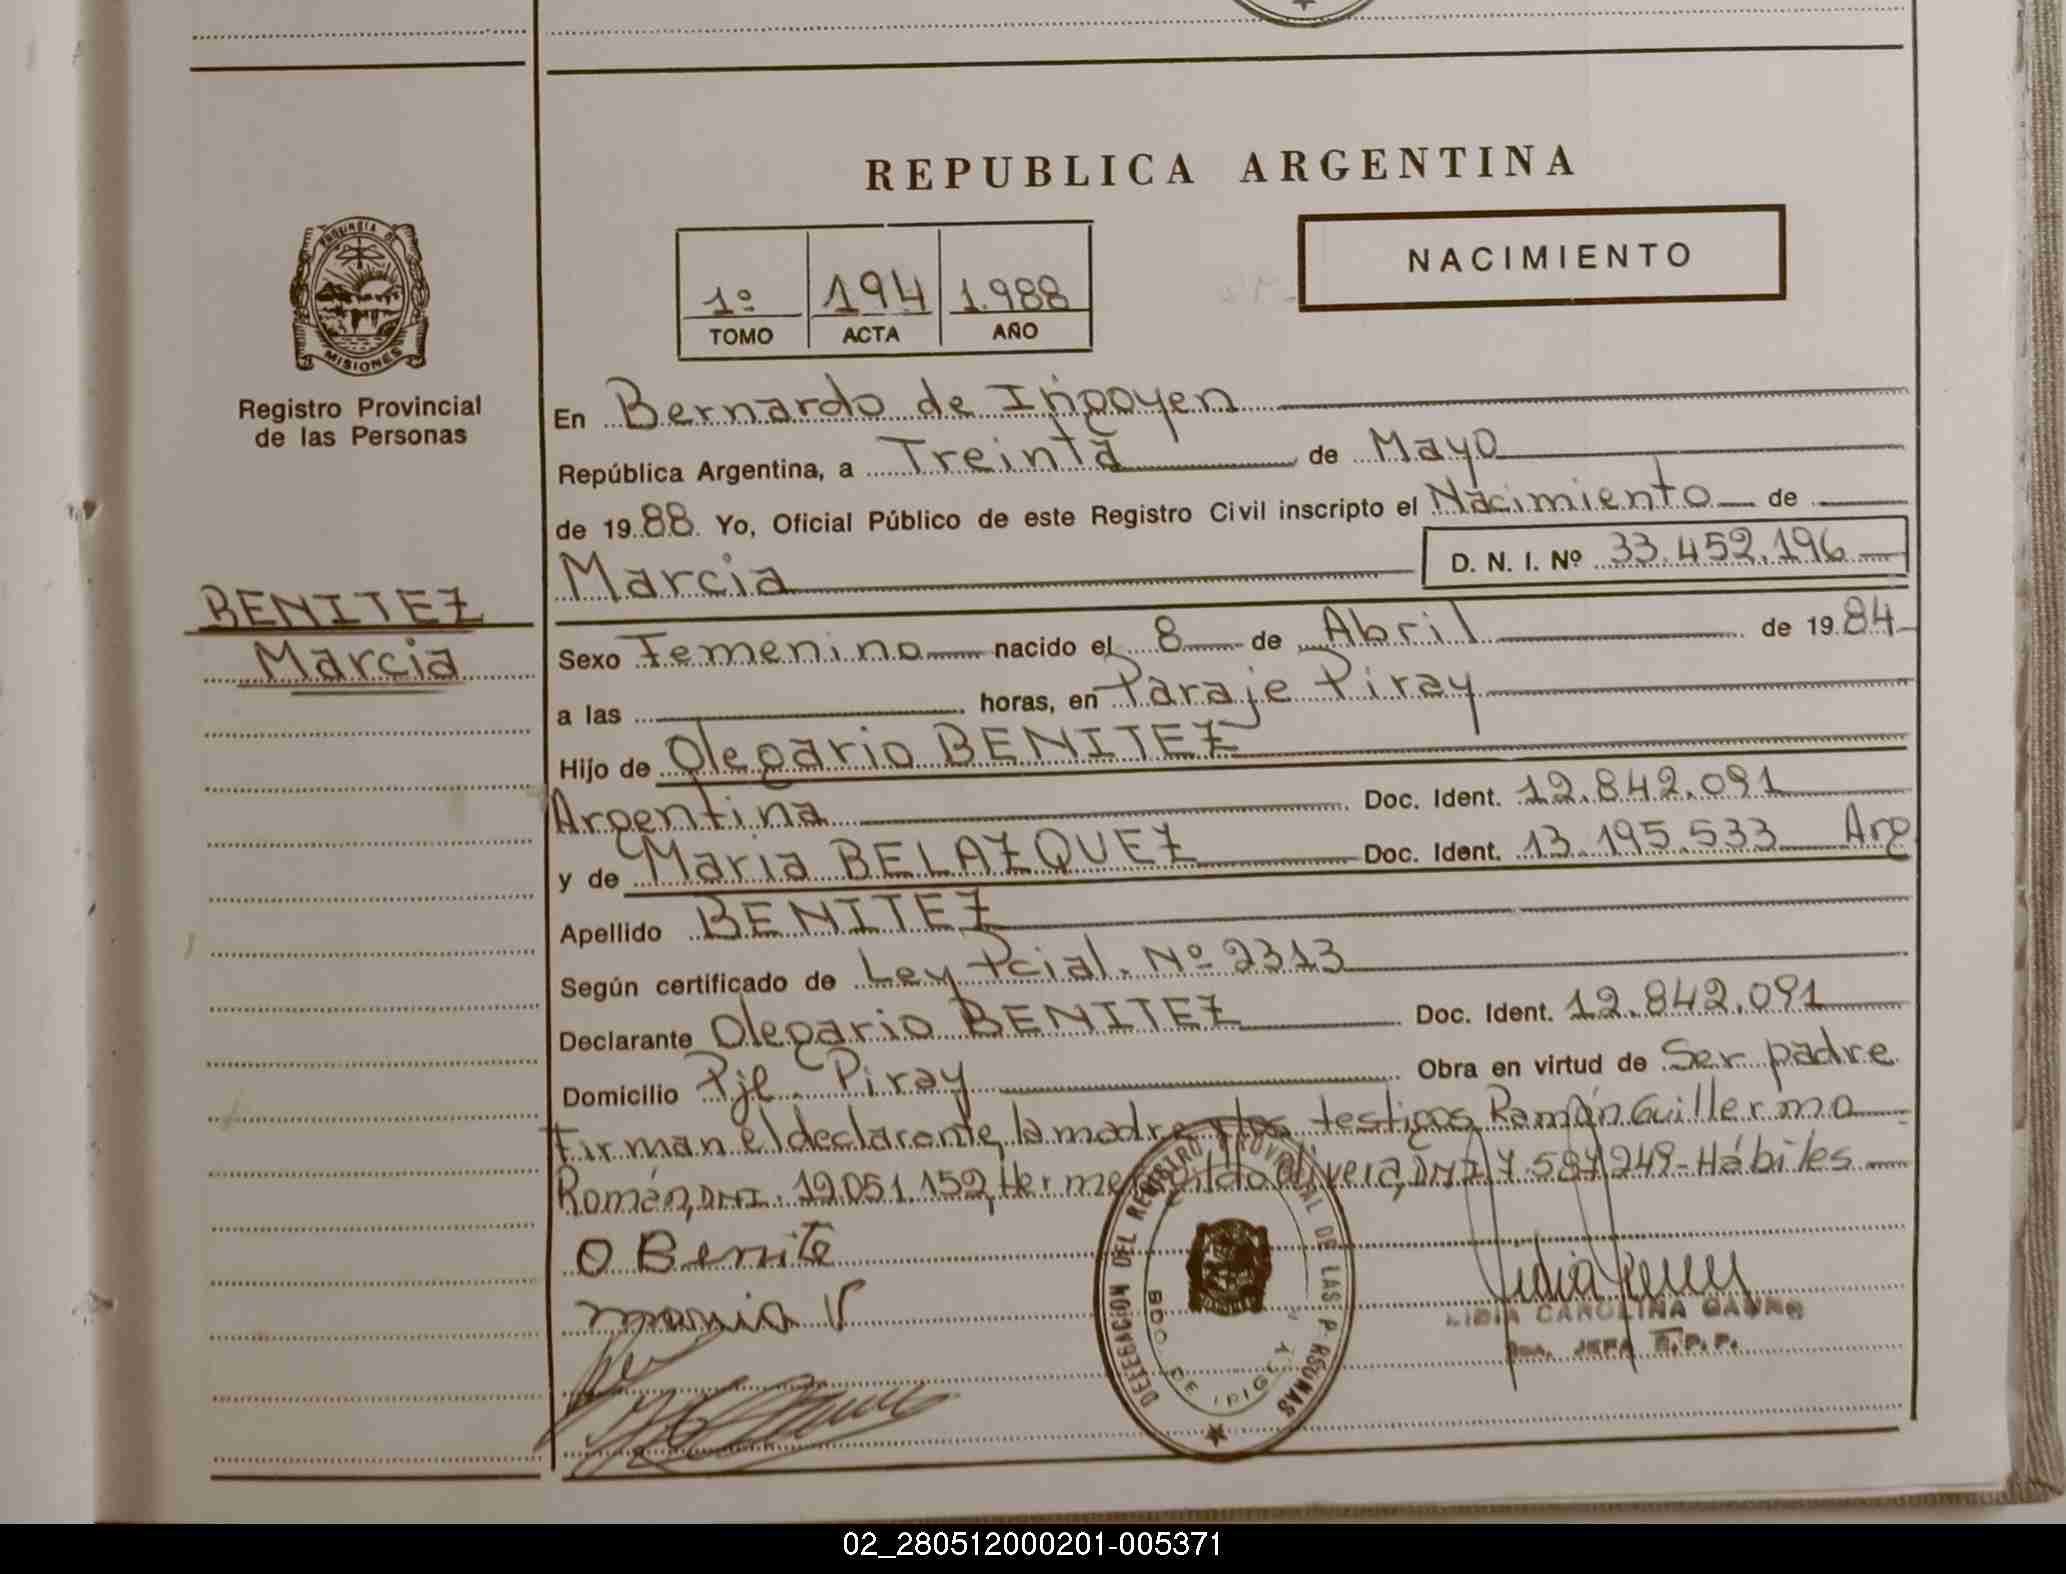 REPUBLICA ARGENTINA
PROVINCIA DE
MISIONES
Registro Provincial
de las Personas
1º 194 1.988
TOMO ACTA AÑO
NACIMIENTO
En Bernardo de Irigoyen
República Argentina, a Treinta de Mayo
de 1988. Yo, Oficial Público de este Registro Civil inscripto el Nacimiento de
Marcia D. N. I. Nº 33.452.196
BENITEZ
Marcia
Sexo Femenino nacido el 8 de Abril de 1984
a las horas, en Paraje Piray
Hijo de Olegario BENITEZ
Argentina Doc. Ident. 12.842.091
y de Maria BELAZQUEZ Doc. Ident. 13.195.533 Arg
Apellido BENITEZ
Según certificado de Ley Pcial. Nº 2313
Declarante Olegario BENITEZ Doc. Ident. 12.842.091
Domicilio Pje Piray Obra en virtud de Ser padre
Firman el declarante, la madre y los testigos Román Guillermo
Román, DNI. 12.051.152, Hermenegildo Olivera, DNI 7.587.249- Hábiles
O Benite
maria V
DELEGACION DEL REGISTRO PROVINCIAL DE LAS PERSONAS
BDO. DE IRIGOYEN
LIDIA CAROLINA
JEFA R.P.P.
02_280512000201-005371